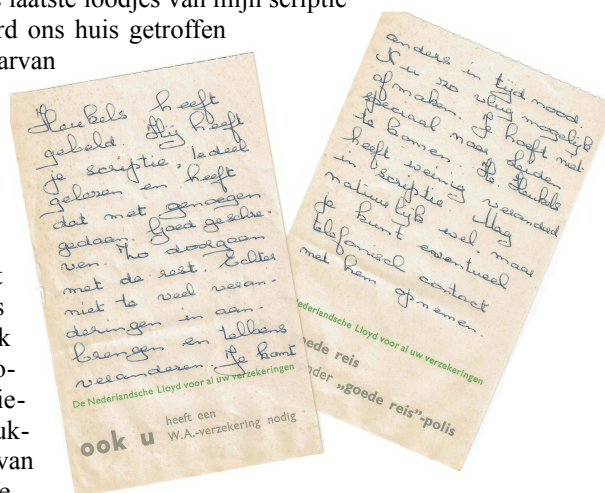 e laatste loodjes van mijn scriptie
rd ons huis getroffen
arvan
t
s
k
o-
ie-
uk-
van
e
Heukels heeft
gebeld. Hij heeft
je scriptie, 1e deel
gelezen en heeft
dat met genoegen
gedaan. Goed geschre-
ven. Zo doorgaan
met de rest. Echter
niet te veel veran-
deringen in aan-
brengen en telkens
veranderen. Je komt
De Nederlandsche Lloyd voor al uw verzekeringen
ook u heeft een
W.A.-verzekering nodig
anders in tijd nood.
N u zo vlug mogelijk
afmaken. Je hoeft niet
speciaal naar Leiden
te komen. Hr. Heukels
heeft weinig veranderd
in scriptie. Mag
natuurlijk wel, maar
je kunt eventueel
telefonisch contact
met hem opnemen.
Nederlandsche Lloyd voor al uw verzekeringen
oede reis
nder „goede reis”-polis